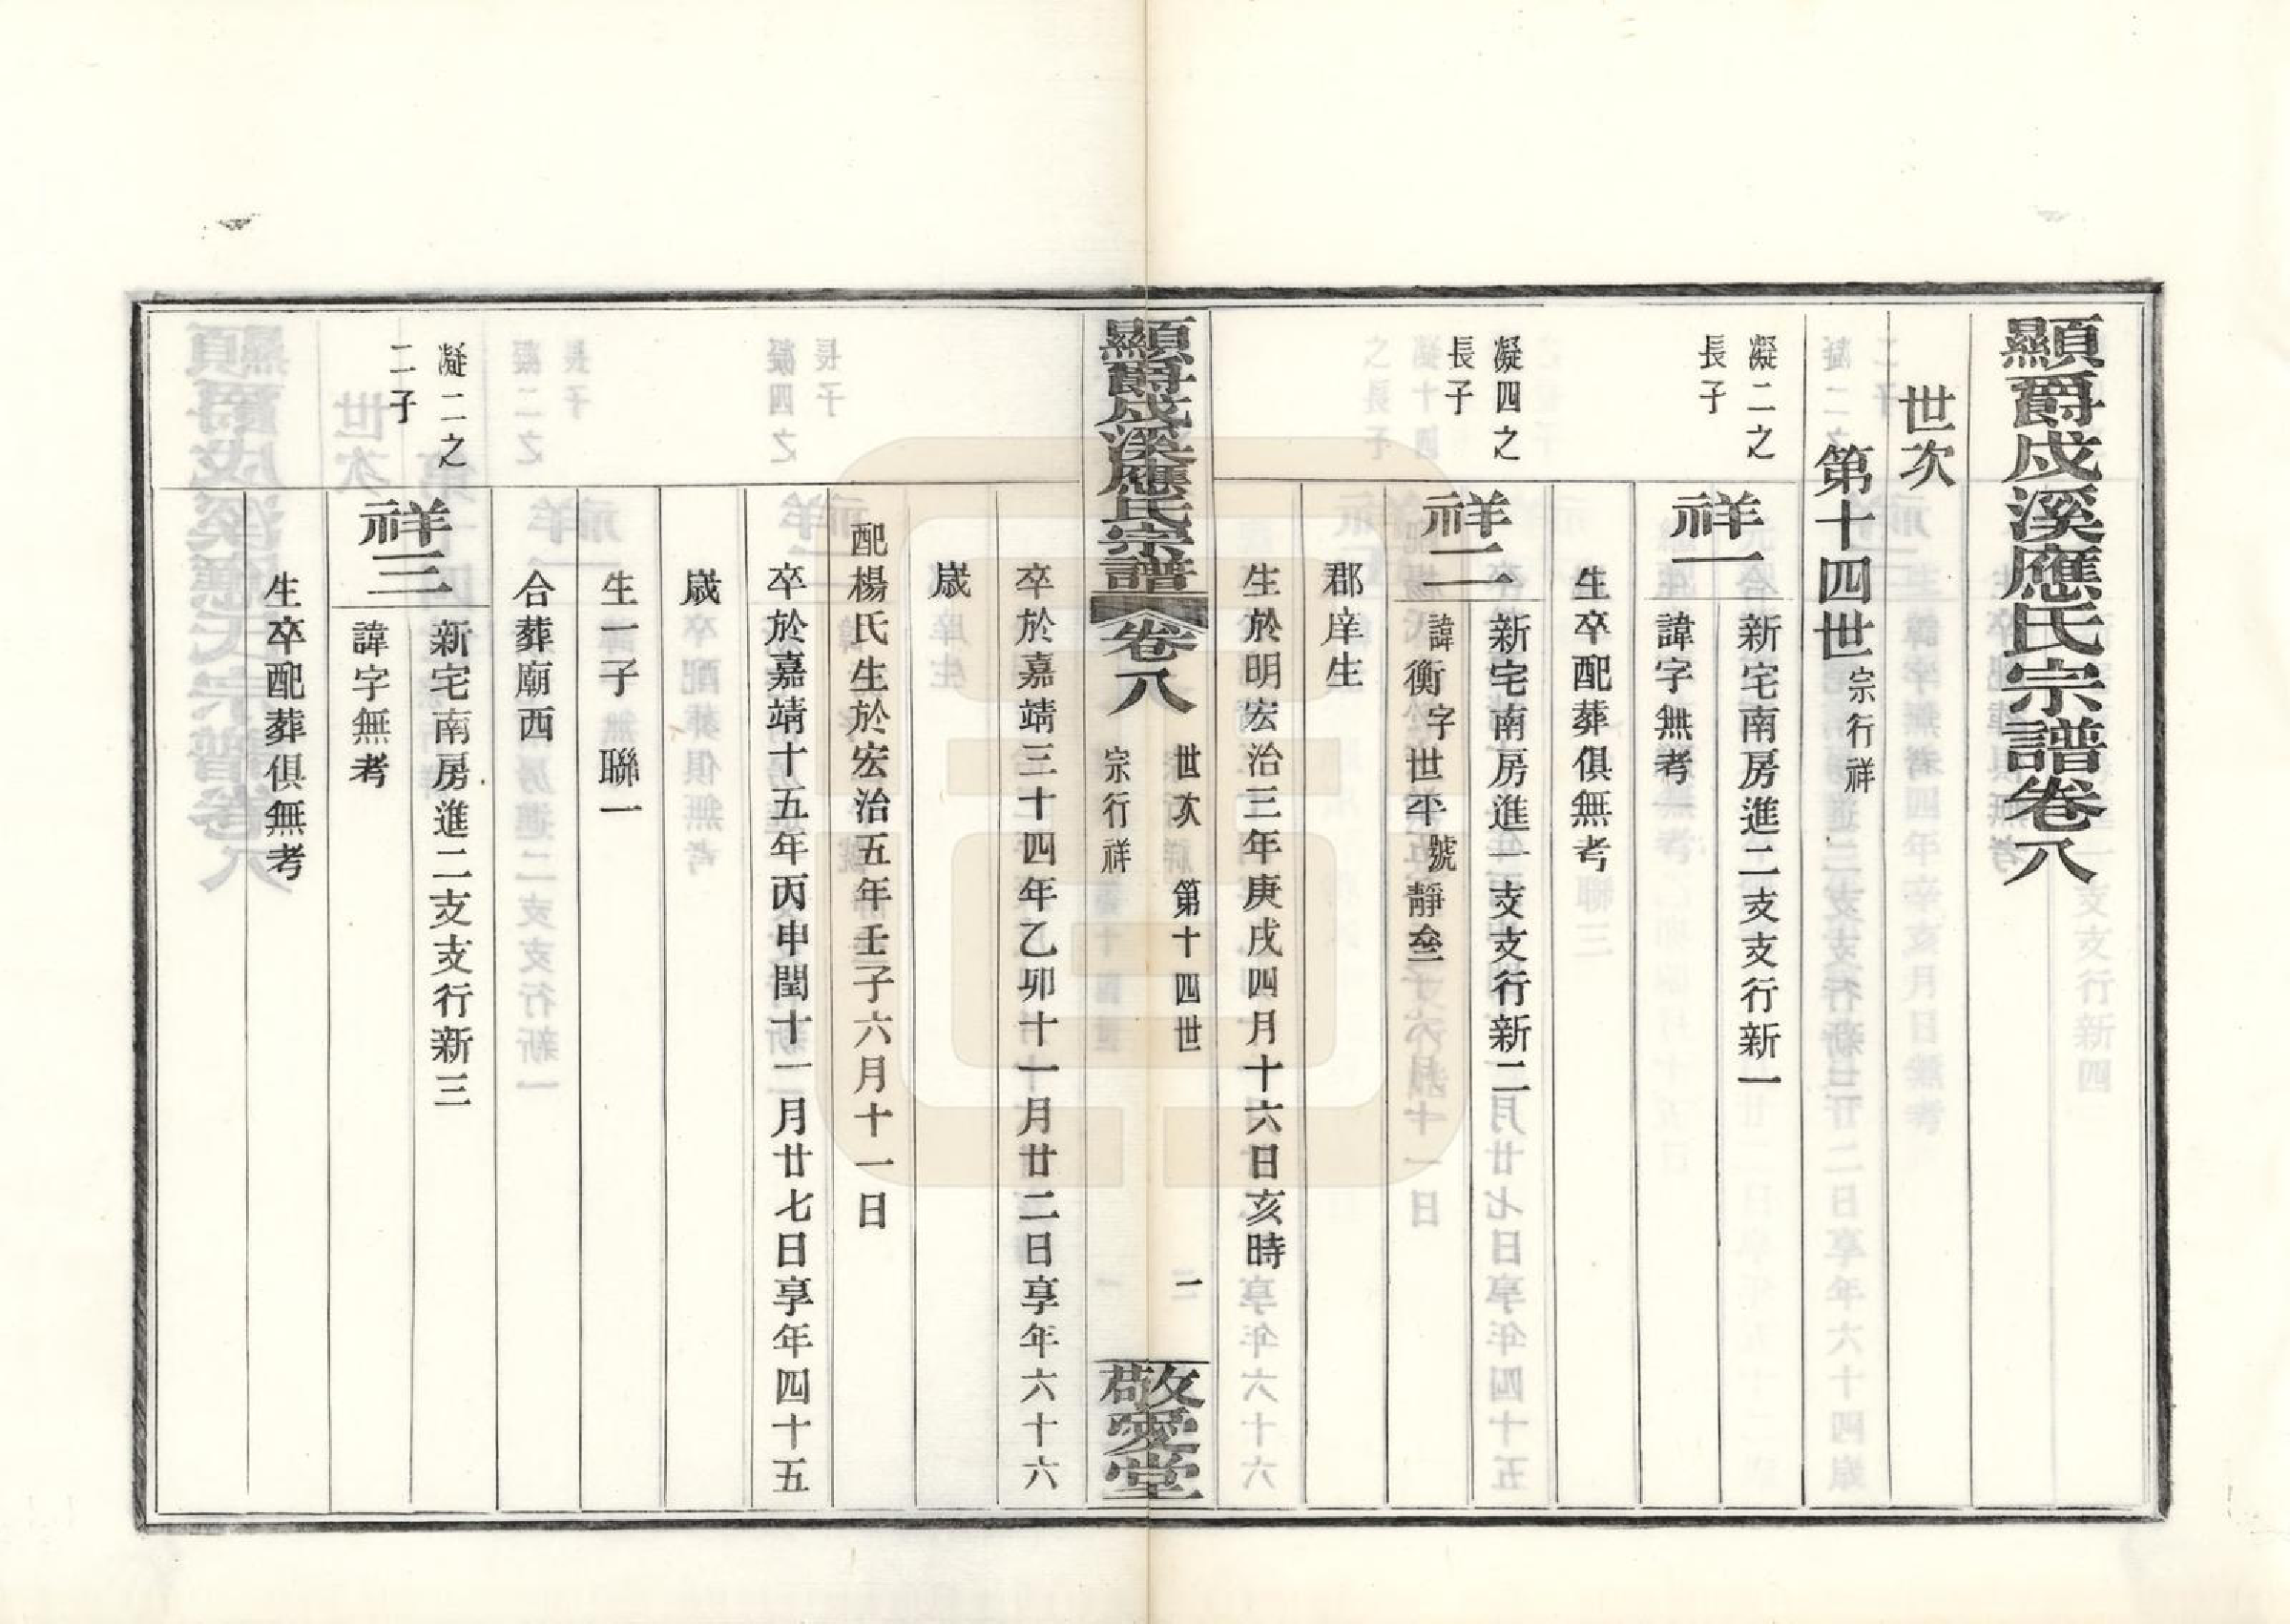 顯爵戍溪應氏宗譜卷八
世次
第十四世 宗行祥
凝二之
長子
祥一
新宅南房進二支支行新一
諱字無考
生卒配葬俱無考
凝四之
長子
祥二
新宅南房進一支支行新二
諱衡字世平號靜叁
郡庠生
生於明宏治三年庚戌四月十六日亥時
顯爵戍溪應氏宗譜 卷八
世次 第十四世
宗行祥
一
敬愛堂
卒於嘉靖三十四年乙卯十一月廿二日享年六十六
歲
配楊氏生於宏治五年壬子六月十一日
卒於嘉靖十五年丙申閏十一月廿七日享年四十五
歲
生一子 聯一
合葬廟西
凝二之
二子
祥三
新宅南房進二支支行新三
諱字無考
生卒配葬俱無考